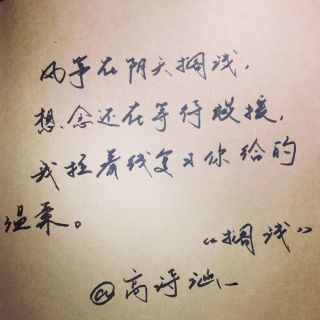 风筝在阴天搁浅，
想念还在等待救援，
我拉着线复习你给的
温柔。
“搁浅”
@高诗